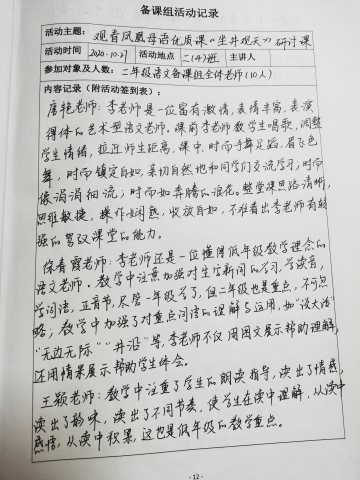 备课组活动记录
活动主题： 观看凤凰母语优质课《坐井观天》研讨课
活动时间 2020-10.27 活动地点 二(4)班 主讲人
参加对象及人数： 二年级语文备课组全体老师(10人)
内容记录（附活动签到表）：
唐艳老师：李老师是一位富有激情，表情丰富，表演
得体的艺术型语文老师，课前李老师教学生唱歌，调整
学生情绪，拉近师生距离，课中，时而手舞足蹈，眉飞色
舞，时而镇定自如，亲切自然地和同学们交流学习；时而
像涓涓细流；时而如奔腾的浪花。整堂课思路清晰，
思维敏捷，操作娴熟，收放自如，不难看出李老师有较
强的驾驭课堂的能力。
徐青霞老师：李老师还是一位懂得低年级教学理念的
语文老师。教学中注意加强对生字新词的学习，学读音，
学词语，正音节，尽管一年级学了，但二年级也是重点，不可忽
略，教学中加强了对重点词语的理解与运用，如“说大话”
“无边无际”“井沿”等，李老师不仅用图文展示帮助理解，
还用情景展示帮助学生体会。
王颖老师：教学中注重了学生的朗读指导，读出了情感，
读出了韵味，读出了不同节奏，使学生在读中理解，从读中
感悟，从读中积累，这也是低年级的教学重点。
- 12 -